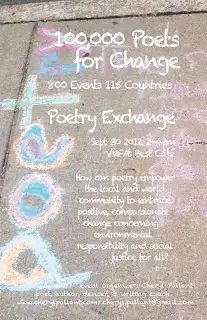 100,000 Poets
for Change
800 Events 115 Countries
Poetry Exchange
Sept 30 2012, 2-4pm
VMFA's Best Café
How can poetry empower
the local and world
community to embrace
positive, compassionate
change concerning
environmental
responsibility and social
justice for all?
event organizer: Cheryl Pallant
poet, author, dancer, & writing coach
www.cherylpallant.com; cherylpallant@gmail.com